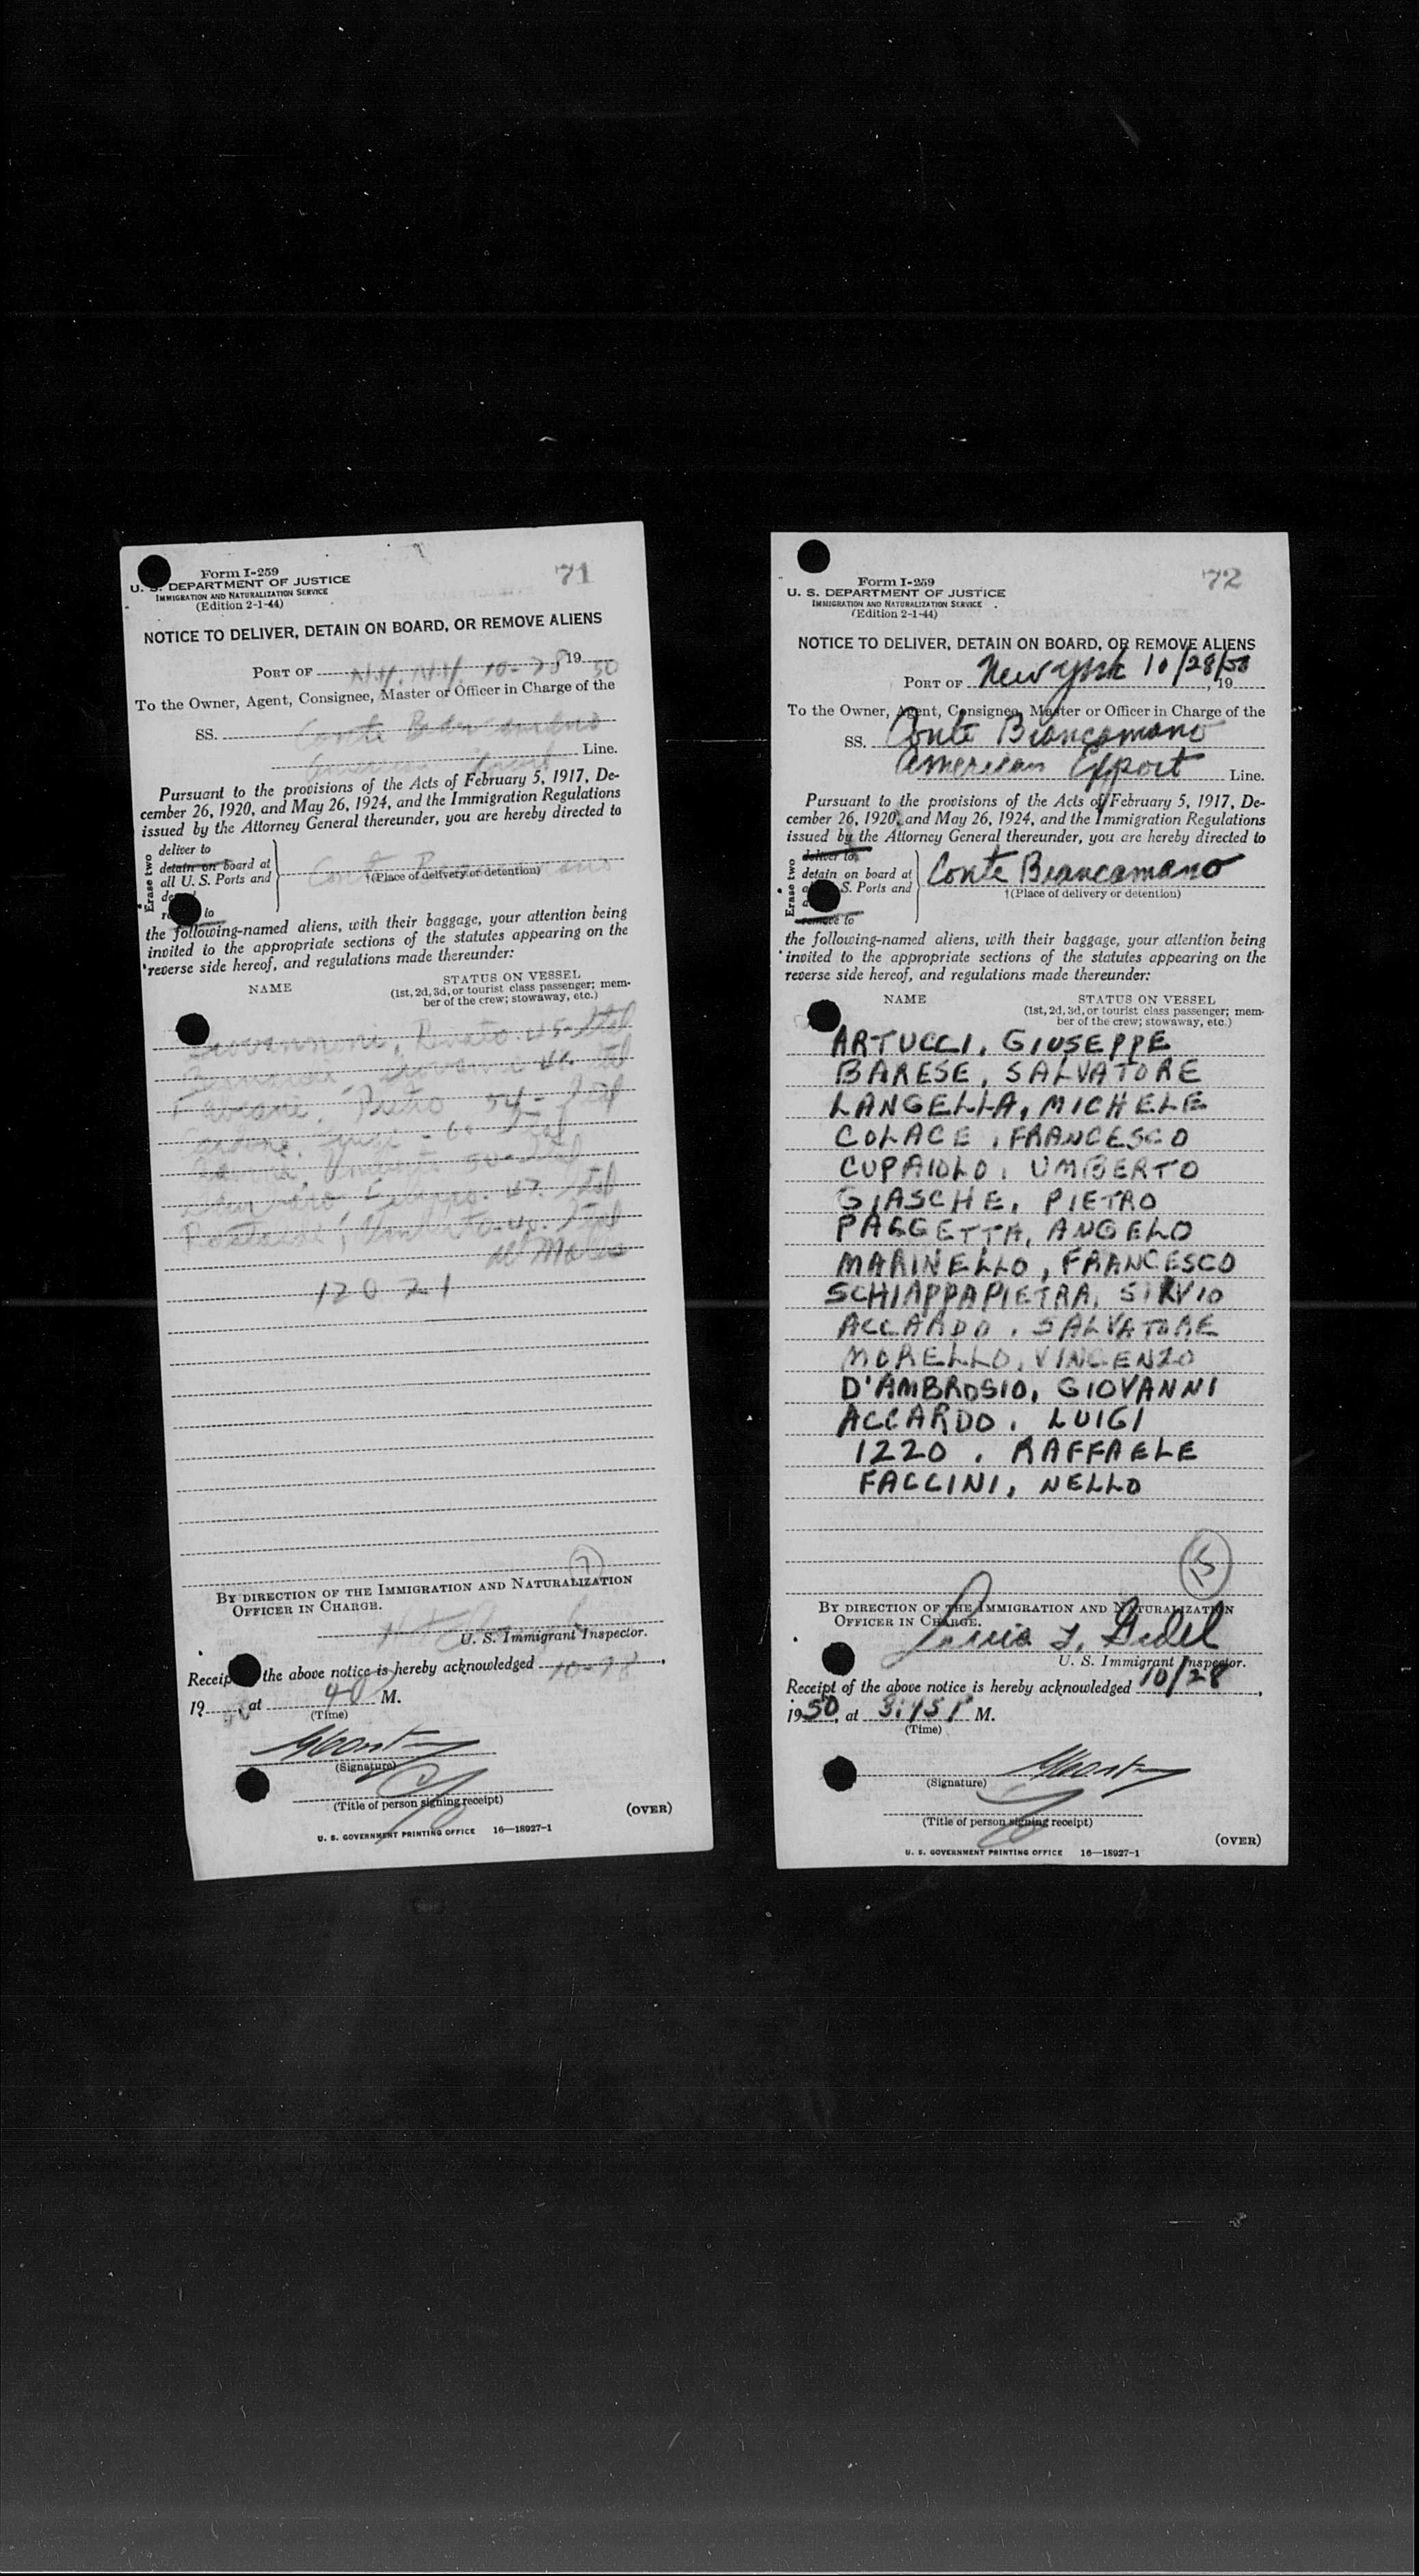 Form I-259
71
U. S. DEPARTMENT OF JUSTICE
IMMIGRATION AND NATURALIZATION SERVICE
(Edition 2-1-44)
NOTICE TO DELIVER, DETAIN ON BOARD, OR REMOVE ALIENS
PORT OF 10-28 1950
To the Owner, Agent, Consignee, Master or Officer in Charge of the
SS. Conte Biancamano
American Line.
Pursuant to the provisions of the Acts of February 5, 1917, De-
cember 26, 1920, and May 26, 1924, and the Immigration Regulations
issued by the Attorney General thereunder, you are hereby directed to
Erase two
deliver to
detain on board at
all U. S. Ports and
to
Conte Biancamano
†(Place of delivery or detention)
the following-named aliens, with their baggage, your attention being
invited to the appropriate sections of the statutes appearing on the
reverse side hereof, and regulations made thereunder:
NAME
STATUS ON VESSEL
(1st, 2d, 3d, or tourist class passenger; mem-
ber of the crew; stowaway, etc.)
Giovannoni, Renato. 45- Ital
Pietro 54- Ital
Umberto 50- Ital
47. Ital
Umberto. 40. Ital
All Males
12021
7
BY DIRECTION OF THE IMMIGRATION AND NATURALIZATION
OFFICER IN CHARGE.
U. S. Immigrant Inspector.
Receipt the above notice is hereby acknowledged 10-28,
19 , at M.
(Time)
(Signature)
(Title of person signing receipt)
(OVER)
U. S. GOVERNMENT PRINTING OFFICE 16—18927-1
Form I-259
72
U. S. DEPARTMENT OF JUSTICE
IMMIGRATION AND NATURALIZATION SERVICE
(Edition 2-1-44)
NOTICE TO DELIVER, DETAIN ON BOARD, OR REMOVE ALIENS
PORT OF New York 10/28/50, 19
To the Owner, Agent, Consignee, Master or Officer in Charge of the
SS. Conte Biancamano
American Export Line.
Pursuant to the provisions of the Acts of February 5, 1917, De-
cember 26, 1920, and May 26, 1924, and the Immigration Regulations
issued by the Attorney General thereunder, you are hereby directed to
Erase two
deliver to
detain on board at
S. Ports and
remove to
Conte Biancamano
†(Place of delivery or detention)
the following-named aliens, with their baggage, your attention being
invited to the appropriate sections of the statutes appearing on the
reverse side hereof, and regulations made thereunder:
NAME
STATUS ON VESSEL
(1st, 2d, 3d, or tourist class passenger; mem-
ber of the crew; stowaway, etc.)
ARTUCCI, GIUSEPPE
BARESE, SALVATORE
LANGELLA, MICHELE
COLACE, FRANCESCO
CUPAIOLO, UMBERTO
GIASCHE, PIETRO
PAGGETTA, ANGELO
MARINELLO, FRANCESCO
SCHIAPPAPIETRA, SIRVIO
ACCARDO, SALVATORE
MORELLO, VINCENZO
D'AMBROSIO, GIOVANNI
ACCARDO, LUIGI
IZZO, RAFFAELE
FACCINI, NELLO
15
BY DIRECTION OF THE IMMIGRATION AND NATURALIZATION
OFFICER IN CHARGE.
U. S. Immigrant Inspector.
Receipt of the above notice is hereby acknowledged 10/28,
1950, at 3:15 P M.
(Time)
(Signature)
(Title of person signing receipt)
(OVER)
U. S. GOVERNMENT PRINTING OFFICE 16—18927-1